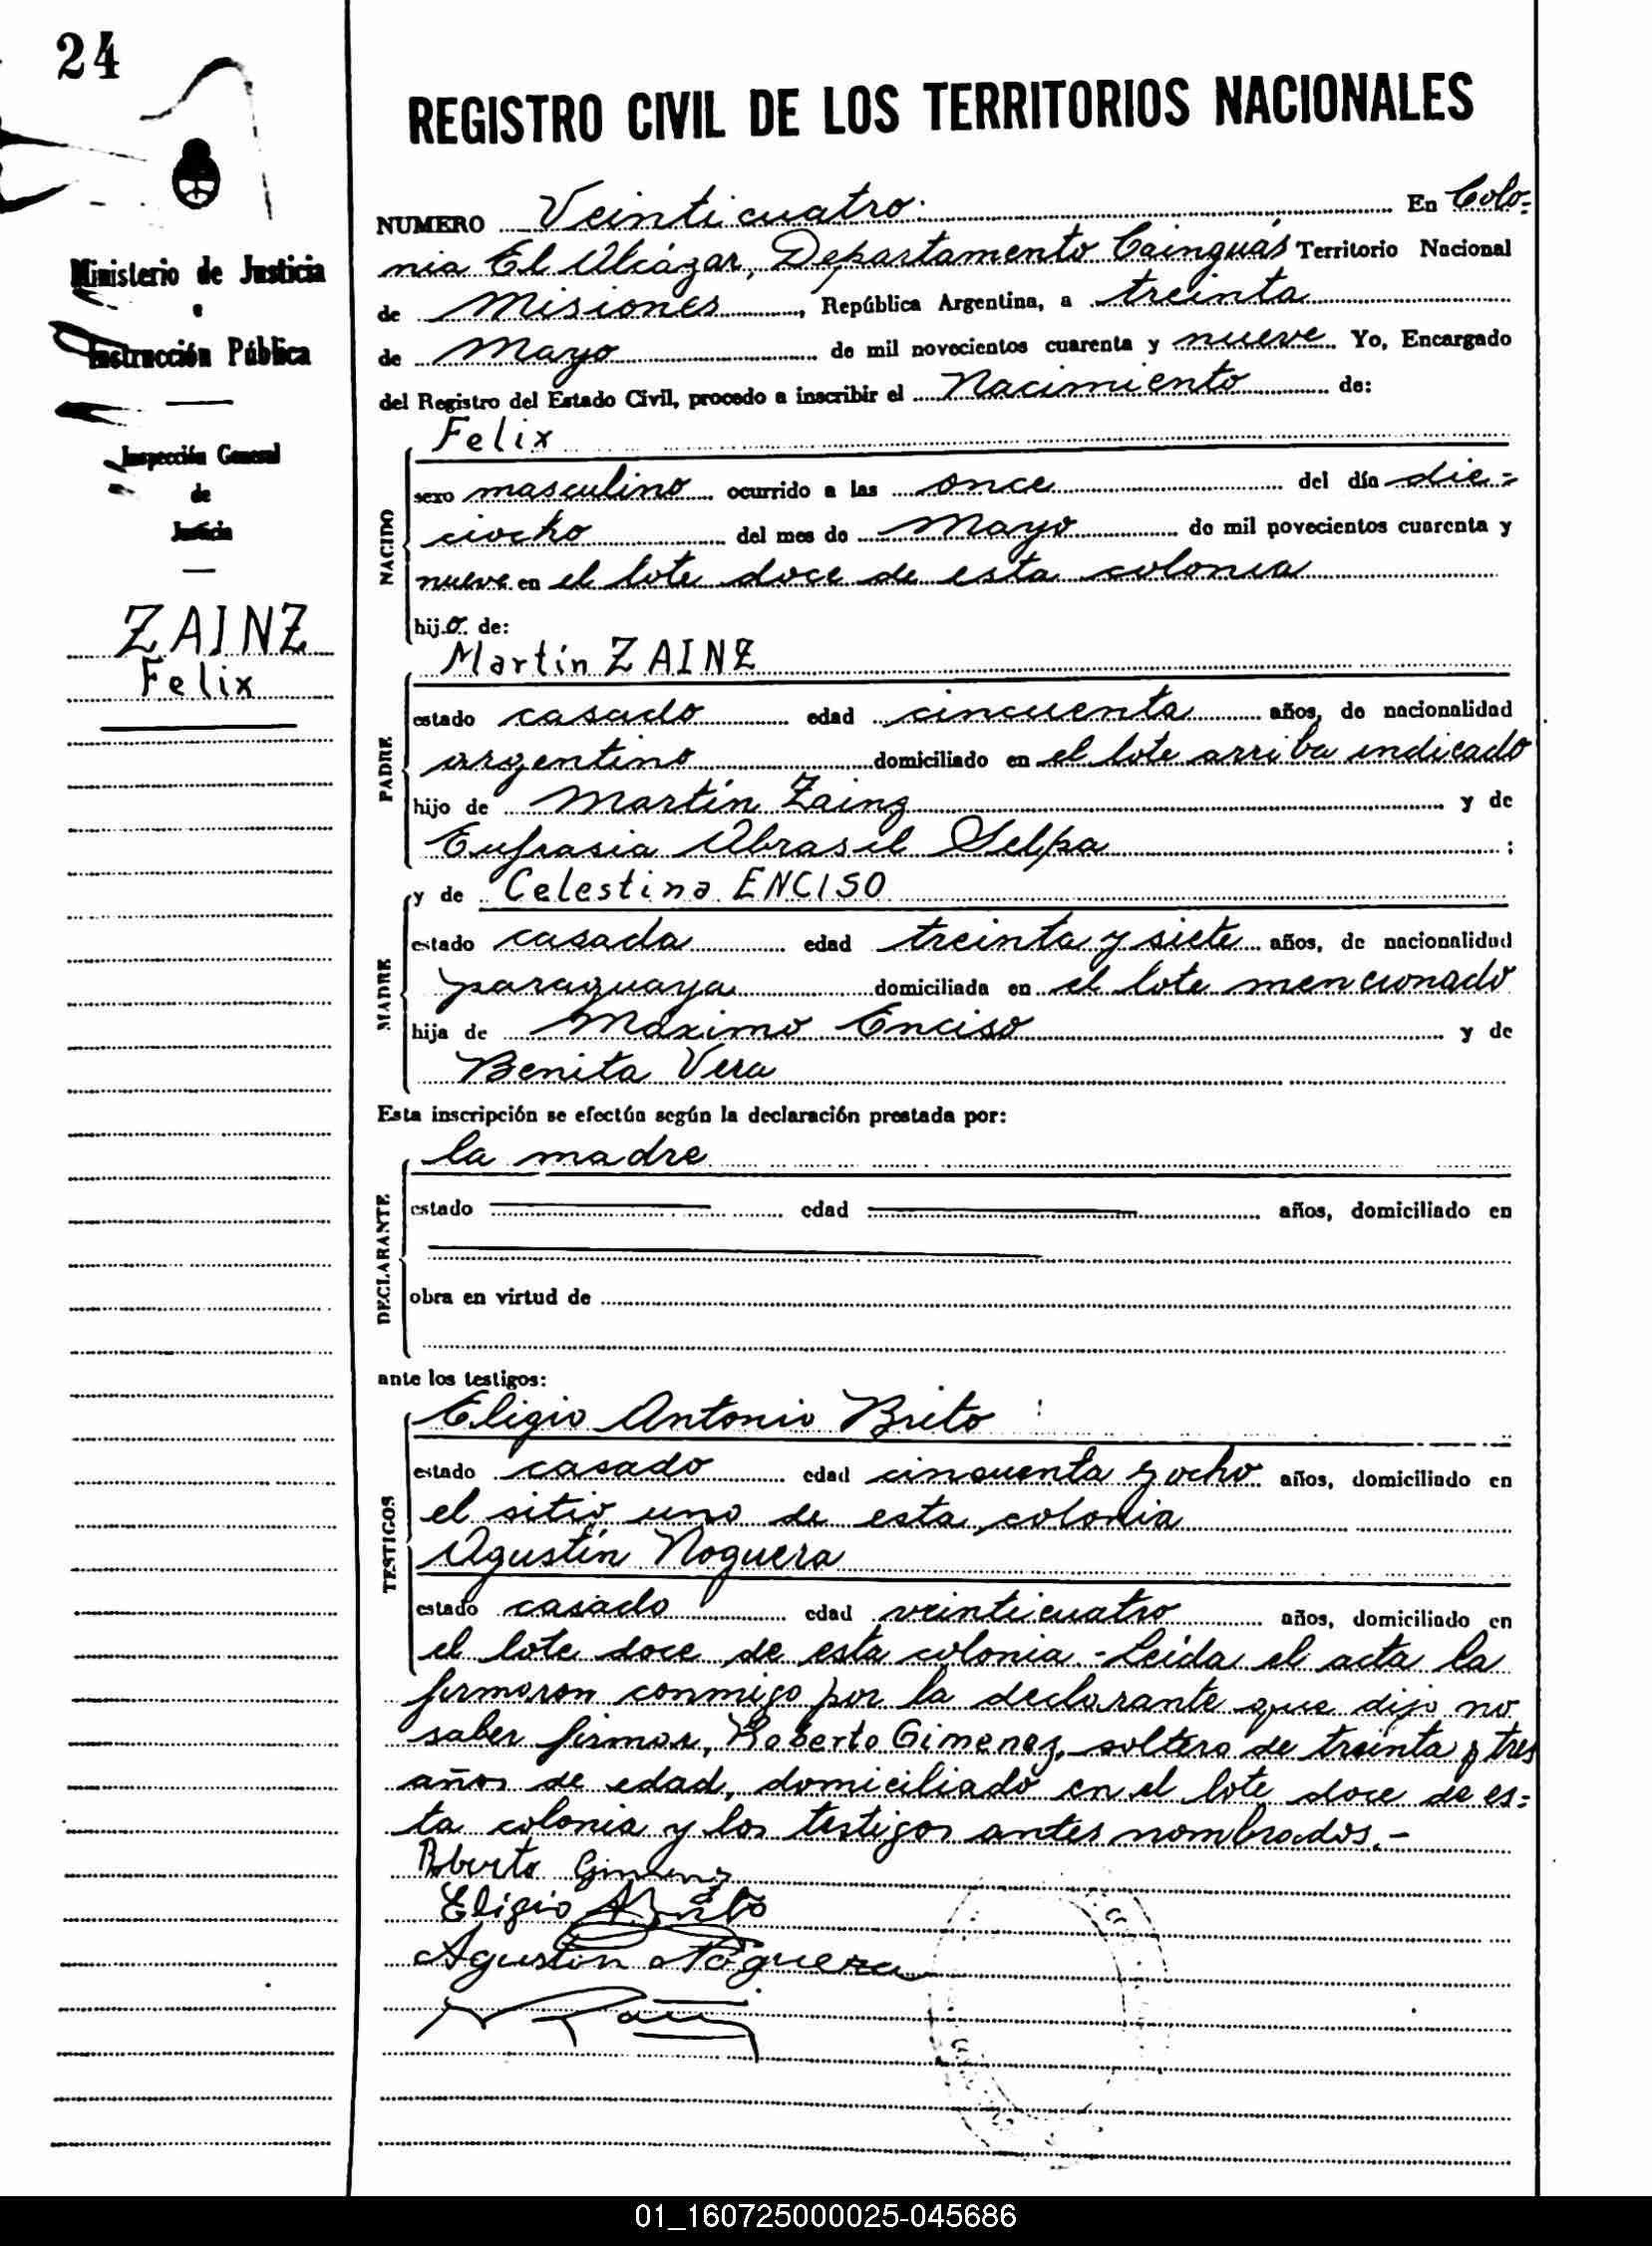 24
Ministerio de Justicia
e
Instrucción Pública
Inspección General
de
Justicia
ZAINZ
Felix
REGISTRO CIVIL DE LOS TERRITORIOS NACIONALES
NUMERO Veinticuatro. En Colo=
nia El Alcázar, Departamento Cainguás Territorio Nacional
de Misiones, República Argentina, a treinta
de Mayo de mil novecientos cuarenta y nueve Yo, Encargado
del Registro del Estado Civil, procedo a inscribir el Nacimiento de:
NACIDO
Felix
sexo masculino ocurrido a las once del día die=
ciocho del mes de Mayo de mil novecientos cuarenta y
nueve en el lote doce de esta colonia
hijo de:
PADRE
Martín ZAINZ
estado casado edad cincuenta años, de nacionalidad
argentino domiciliado en el lote arriba indicado
hijo de Martín Zainz y de
Eufrasia Abrasil Selpa ;
MADRE
y de Celestina ENCISO
estado casada edad treinta y siete años, de nacionalidad
paraguaya domiciliada en el lote mencionado
hija de Máximo Enciso y de
Benita Vera
Esta inscripción se efectúa según la declaración prestada por:
DECLARANTE
la madre
estado edad años, domiciliado en
obra en virtud de
ante los testigos:
TESTIGOS
Eligio Antonio Brito
estado casado edad cincuenta y ocho años, domiciliado en
el sitio uno de esta colonia
Agustín Noguera
estado casado edad veinticuatro años, domiciliado en
el lote doce de esta colonia.-Leída el acta la
firmaron conmigo por la declarante que dijo no
saber firmar, Roberto Gimenez, soltero de treinta y tres
años de edad, domiciliado en el lote doce de es=
ta colonia y los testigos antes nombrados.-
Roberto Gimenez
Eligio A. Brito
Agustin Noguera
01_160725000025-045686